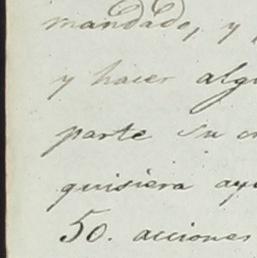 mandado, y
y hacer algu
parte su
quisiera
50. acciones